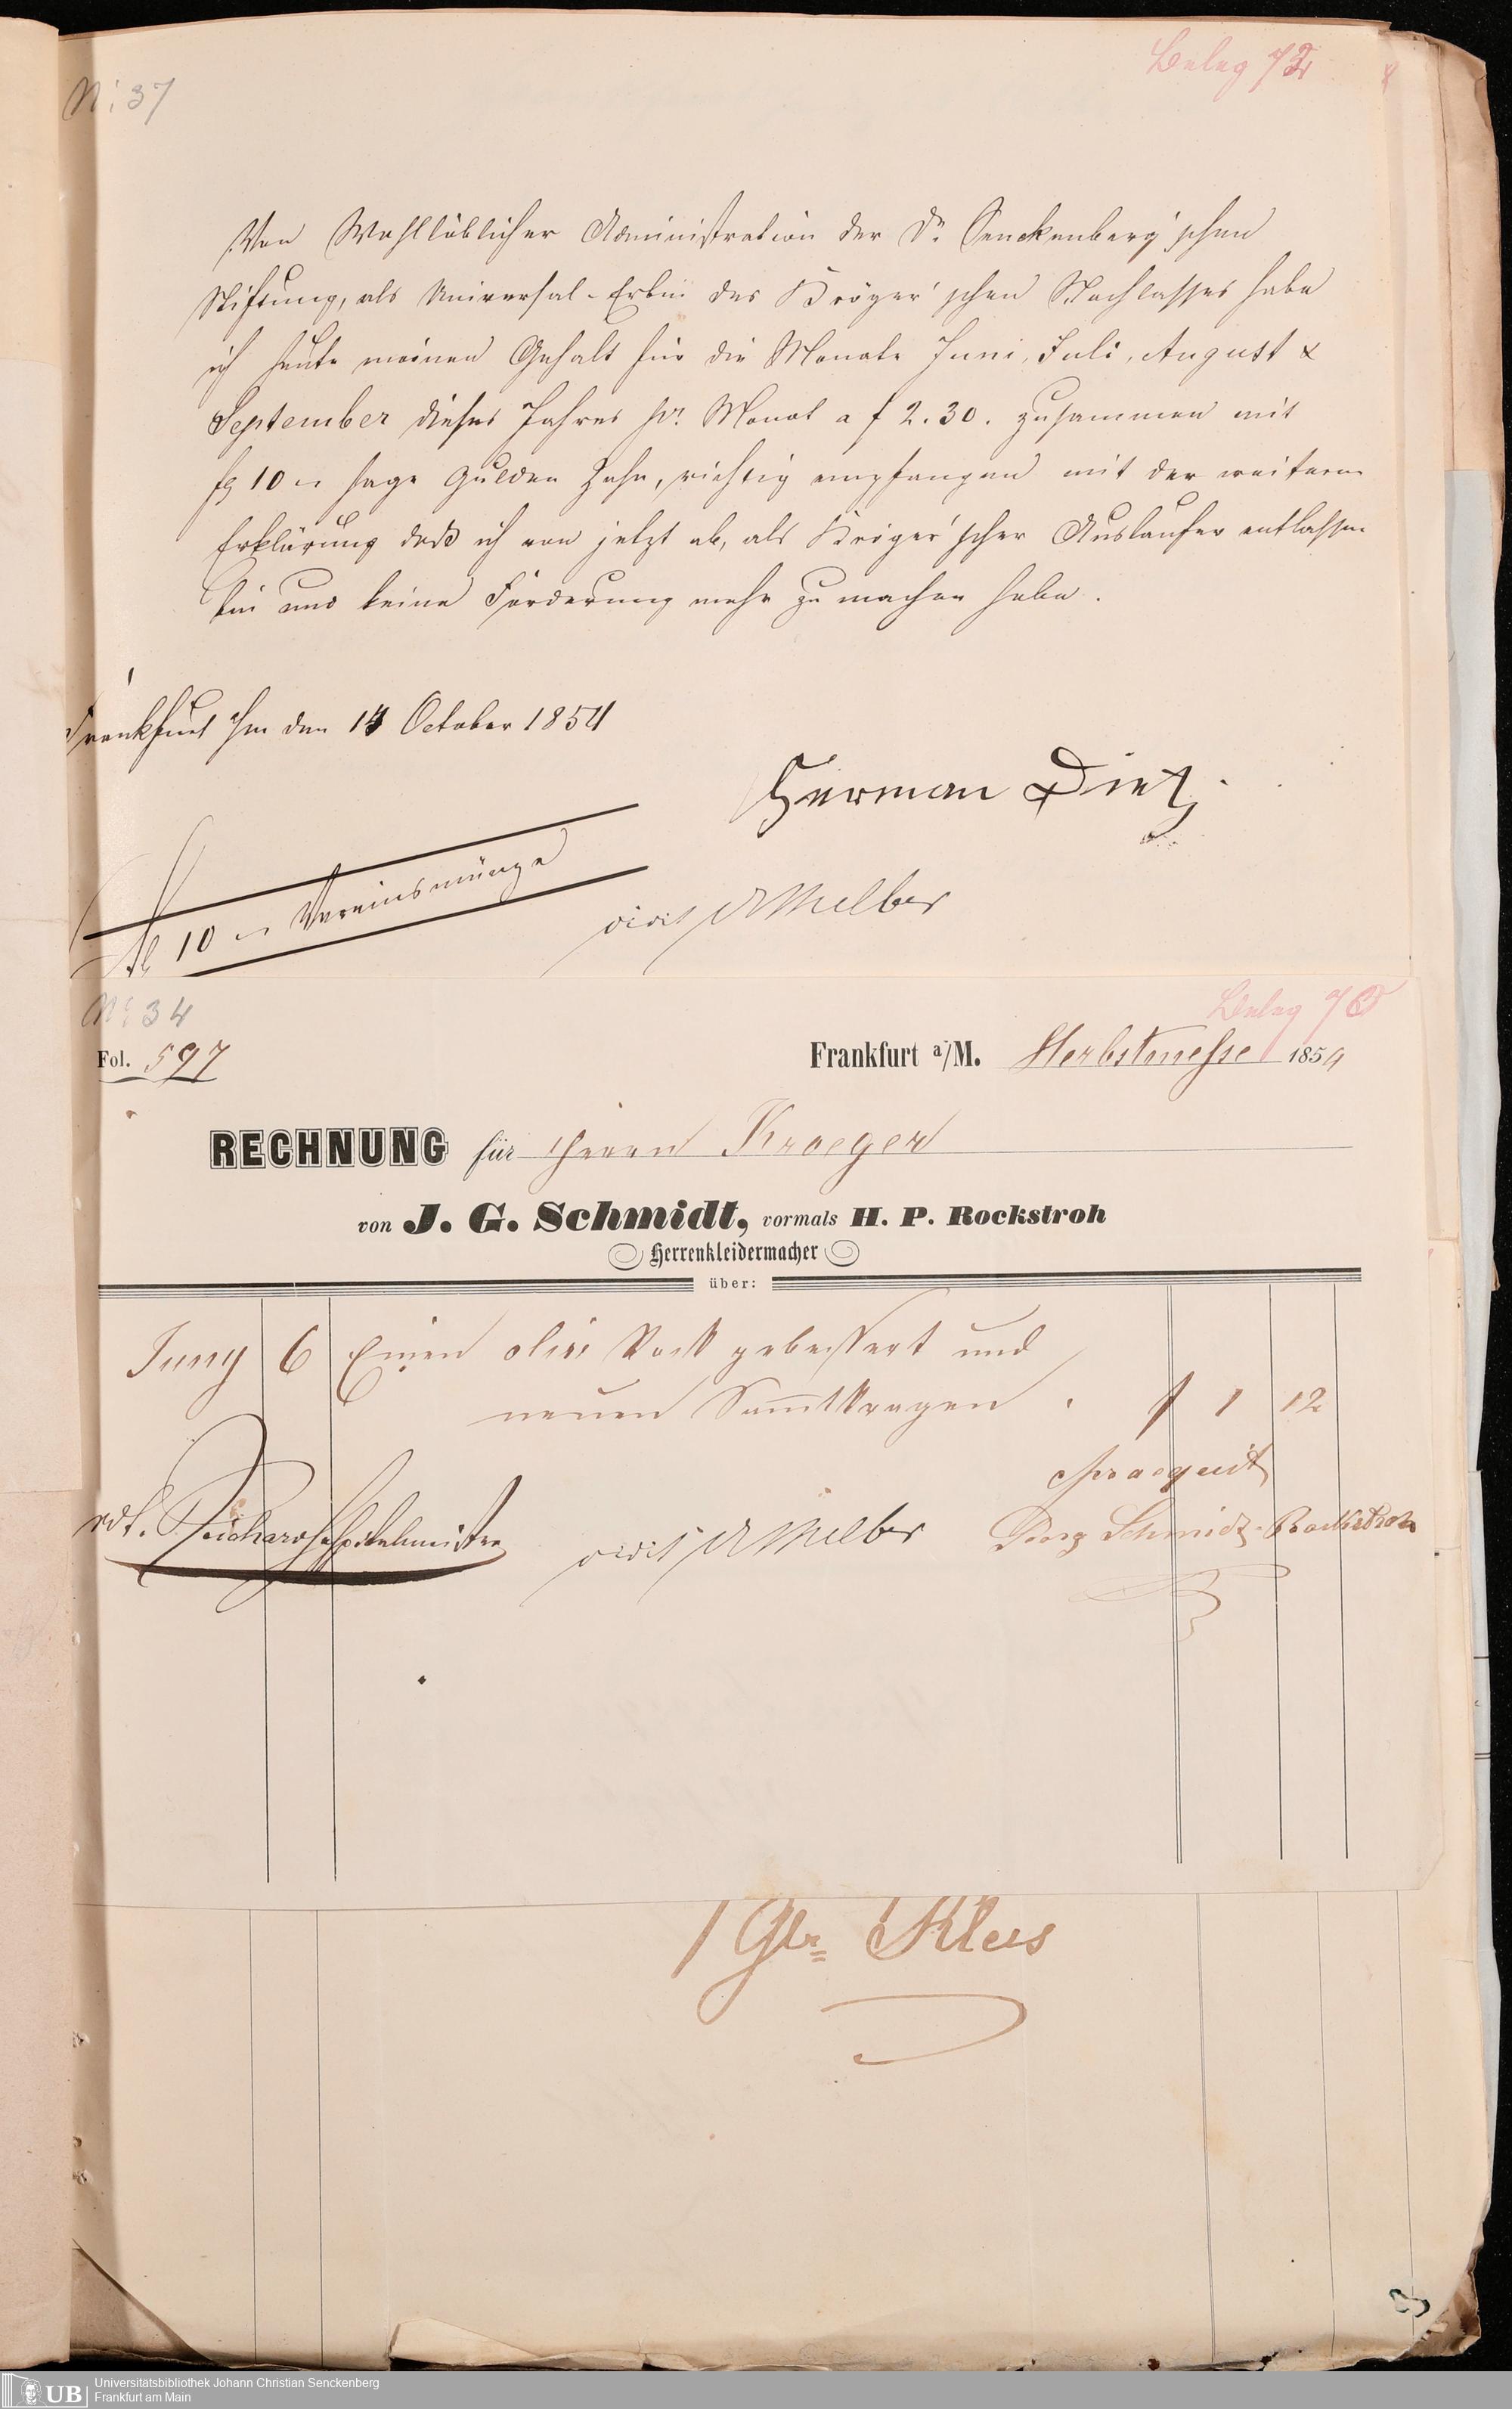 Beleg 72
N: 37
Von Wohllöblicher Administration der Dr. Senckenberg'schen
Stiftung, als Universal-Erbin des Kröger'schen Nachlasses habe
ich heute meinen Gehalt für die Monate Juni, Juli, August &
September dieses Jahres pr. Monat a f 2.30. zusammen mit
fl 10 - sage Gulden Zehn, richtig empfangen mit der weitern
Erklärung daß ich von jetzt ab, als Kröger'scher Auslaufer entlassen
bin und keine Forderung mehr zu machen habe.
Frankfurt a/m den 14 October 1854
Herman Dietz.
fl 10 - Vereinsmünze
vidit Melber
Beleg 73
No 34
Fol. 597
Frankfurt a/M. Herbstmesse 1854
RECHNUNG für Herrn Kroeger
von J. G. Schmidt, vormals H. P. Rockstroh
Herrenkleidermacher
über:
Juny 6 Einen oliv Rock gebessert und
neuen Sammtkragen . f 1 12
Georg Schmidt-Rockstroh
vdt. Reichard Hospitalmeister
vidit Melber
Gbr. Klees
Universitätsbibliothek Johann Christian Senckenberg
UB
Frankfurt am Main